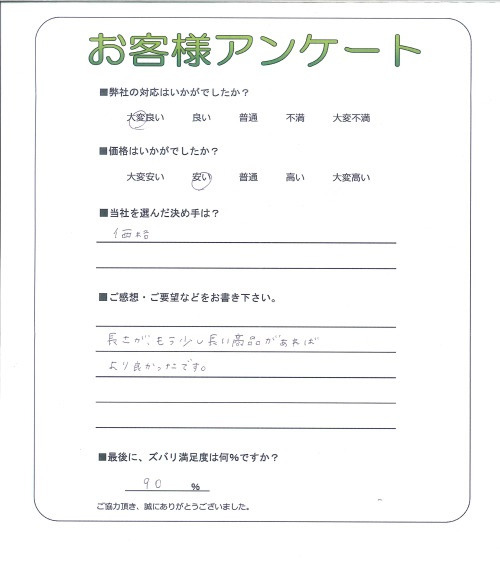 お客様アンケート
■弊社の対応はいかがでしたか？
大変良い 良い 普通 不満 大変不満
■価格はいかがでしたか？
大変安い 安い 普通 高い 大変高い
■当社を選んだ決め手は？
価格
■ご感想・ご要望などをお書き下さい。
長さが、もう少し長い商品があれば
より良かったです。
■最後に、ズバリ満足度は何%ですか？
90 %
ご協力頂き、誠にありがとうございました。